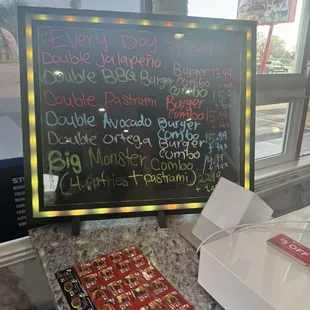 Every Day Specials
Double Jalapeño Burger 13.99
combo + tax
Double BBQ Burger 15.99
Combo + tax
Double Pastrami Burger
Combo 15.99
+ tax
Double Avocado Burger
Combo 15.99
+ tax
Double Ortega Burger
Combo + tax
Big Monster Combo
(4 entries + pastrami) 22.99
+ tax
$5 OFF